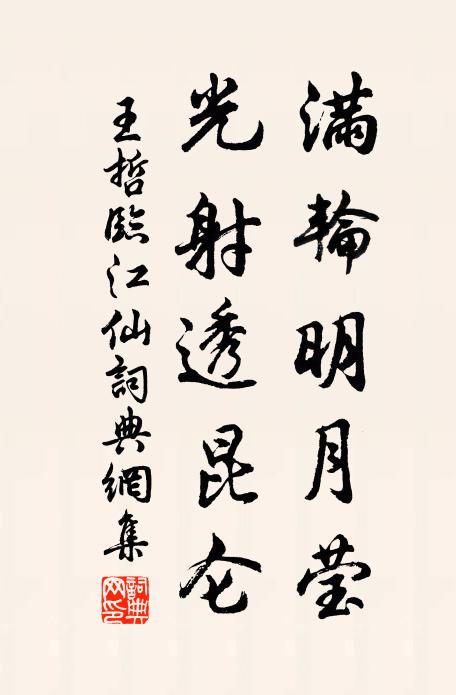 满轮明月莹
光射透昆仑
王哲临江仙詞典網集
詞典网印